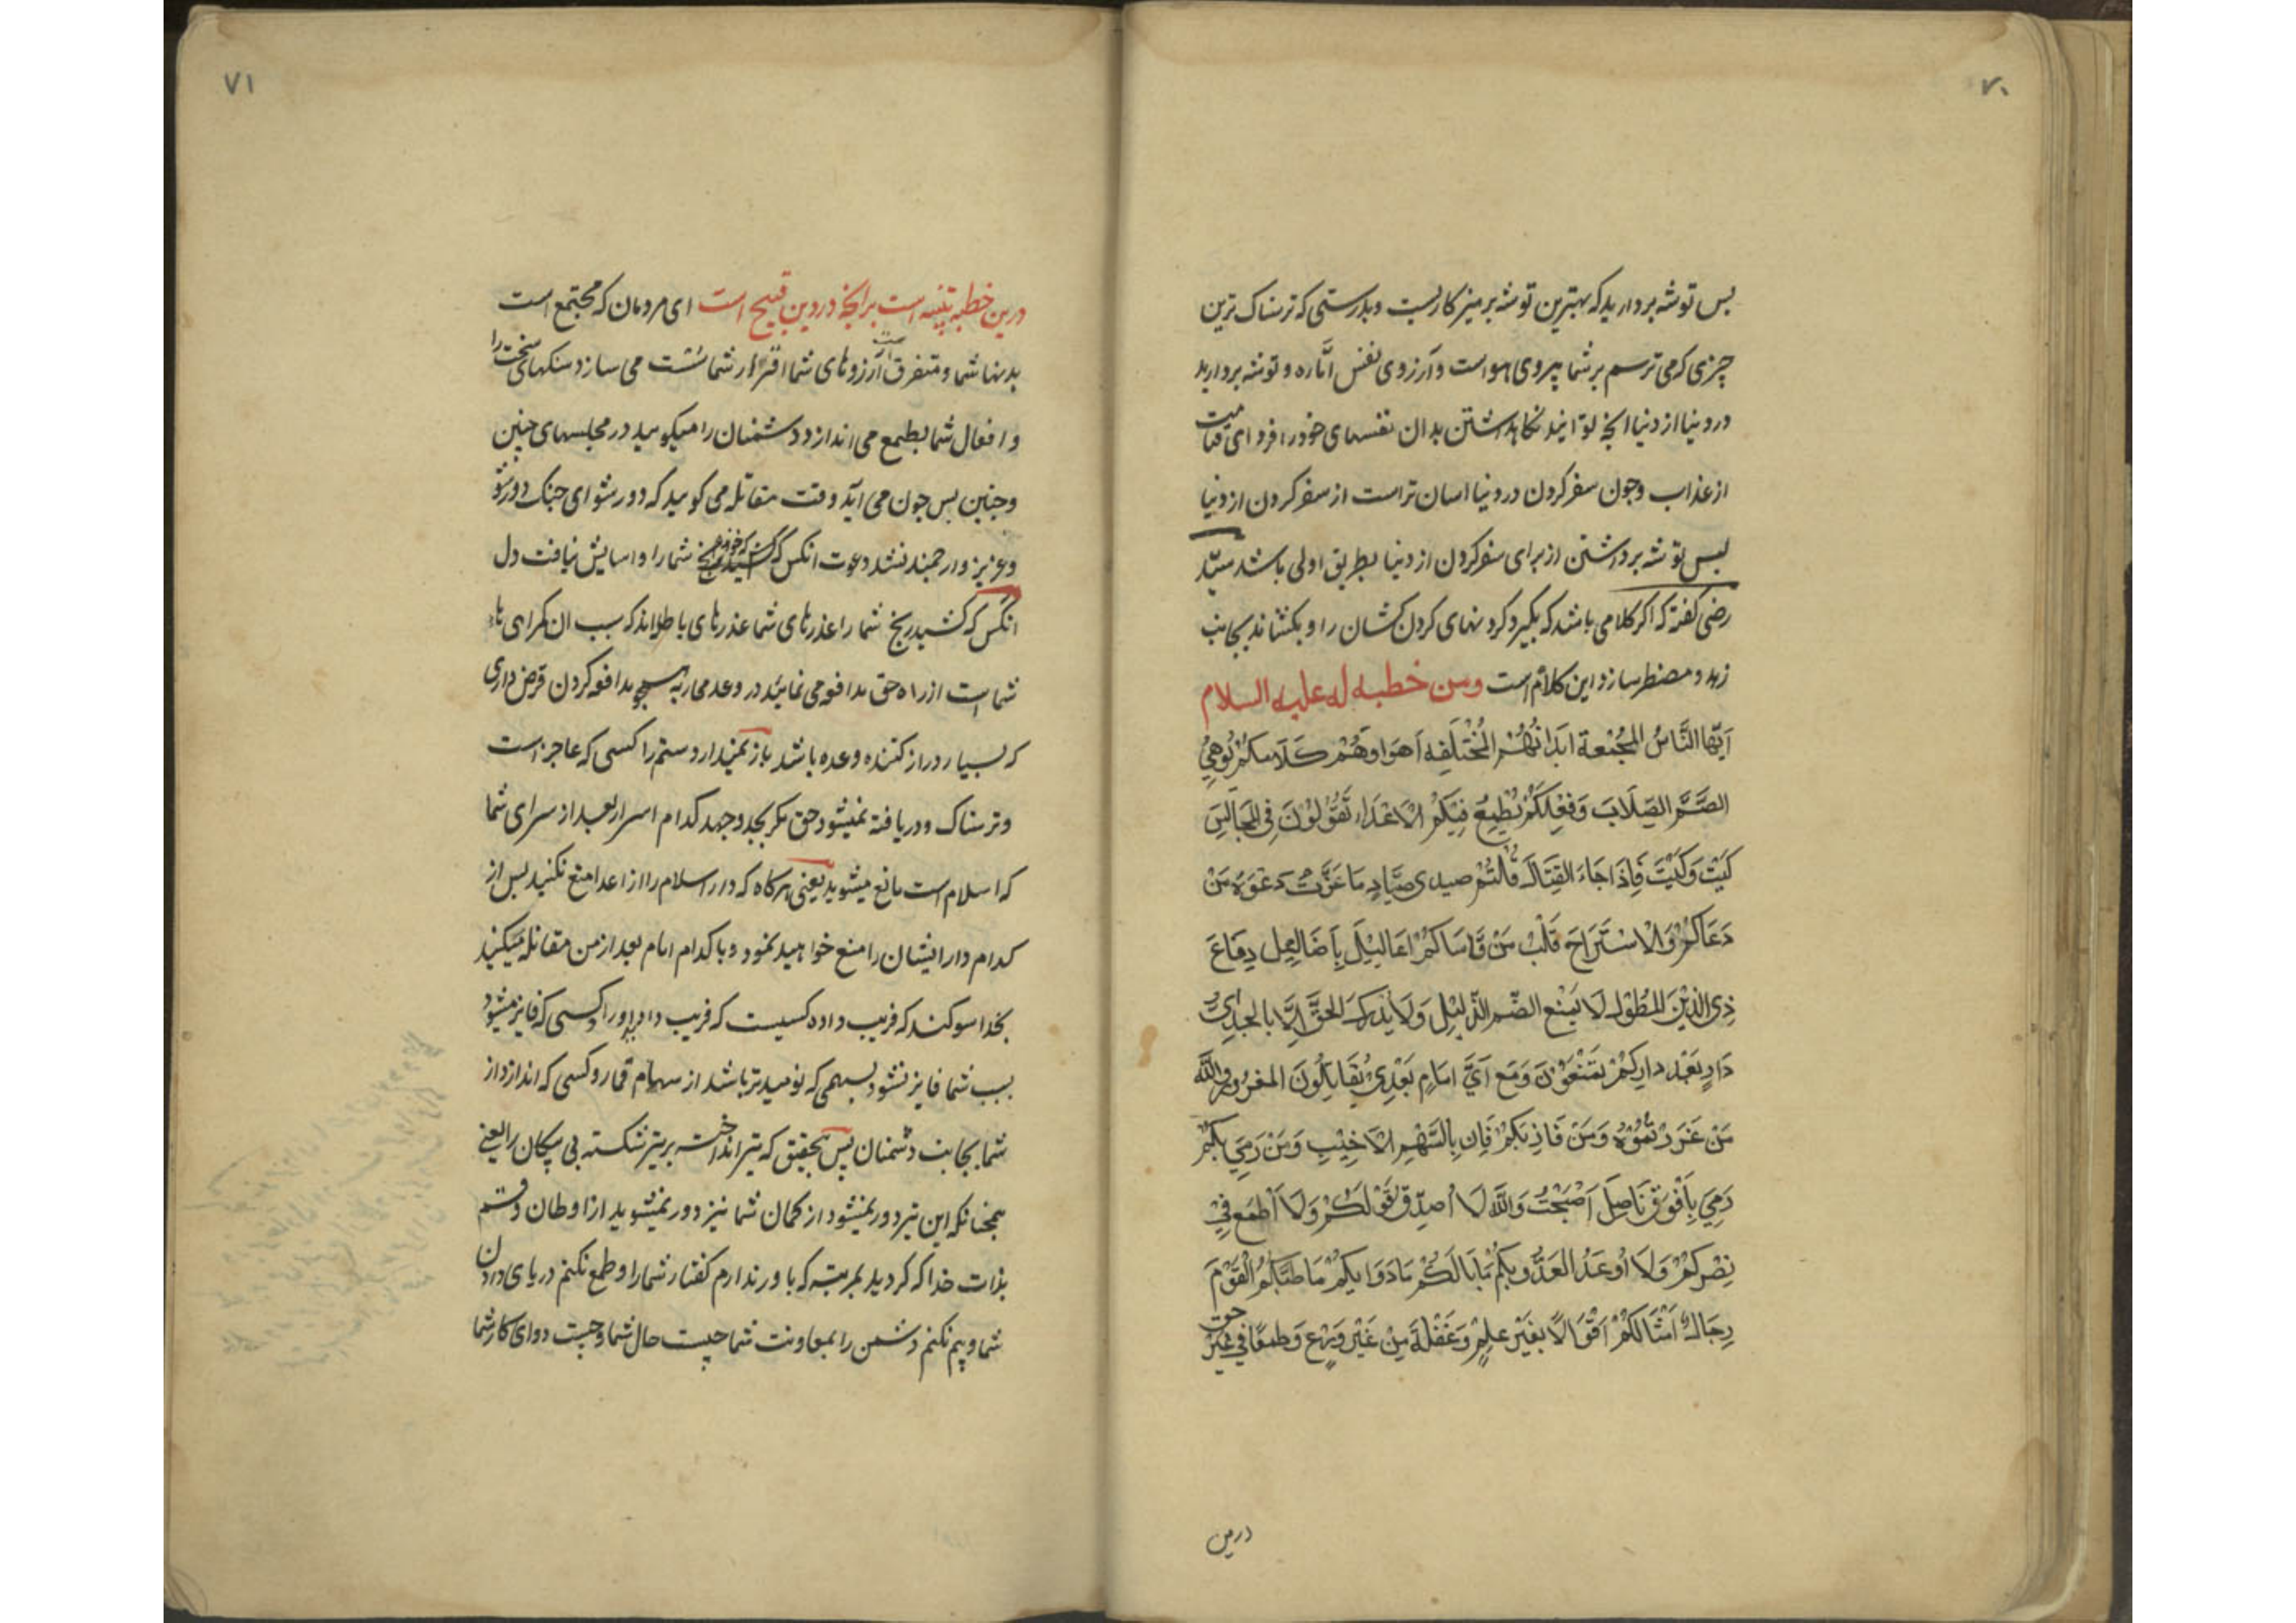 ۷۰
بس توشه بردارید که بهترین توشه پرهیزکاریست و بدرستی که ترسناک ترین
چیزی که می ترسم بر شما پیروی هواست و آرزوی نفس امّاره و توشه بردارید
در دنیا از دنیا انچه توانید نکاهداشتن بدان نفسهای خود را فردای قیامت
از عذاب وچون سفر کردن در دنیا اسان تر است از سفر کردن از دنیا
بس توشه برداشتن از برای سفر کردن از دنیا بطریق اولی باشد سیّد
رضی کفته که اکر کلامی باشد که بکیرد کردنهای کردن کشان را و بکشاند بجانب
زهد و مضطر سازد این کلام است ومن خطبه له علیه السلام
اَیّها النَّاسُ المجُتَمعة ابَدَانُهُمْ المُخْتَلَفِه اَهوَاوهُمْ كَلَامكمْ يُوهِيُ
الصَّمَّ الصِّلَابَ وَفِعْلِكُمْ يُطْمِعُ فِيَكُمْ الاَعْدَاء تَقُوْلُوْنَ فِى المَجَالِسَ
كَيْتَ وَكَيْتَ فَاِذَا جَاءَ القِتَال قُالتُمْ حيدى حيَادِ مَا عَزَّتْ دَعْوَةُ مَنْ
دَعَاكُمْ وَلَا اسْتَرَاحَ قَلْبُ مَنْ قَاسَاكُمْ اعَاليْلَ بِاَضَاليل دِفَاعَ
ذِى الدَّيْنَ المطُوْل لَا يَمْنع الضّيم الذّليْل وَلَا يُدْرَك الحقَّ اِلَّا بالجِدّ اىَّ
دَارٍ بَعْد دارِكمْ تمنَعُوْنَ وَمَع اَىِّ امَامٍ بَعْدِىْ تُقَاتِلُونَ المغرُور واللَّه
مَنْ غَرَرْتمُوْهُ وَمَنْ فَازِ بَكمْ فَازِ بِالسَّهْمِ الاَخْيَبِ وَمَنْ رَمِىَ بِكمْ
رَمِىَ بِاَفْوَقَ نَاصِلَ اَصْبَحْتُ وَاللَّه لَا اُصدّق قَوْلَكُمْ وَلَا اَطْمَع فىْ
نِصْرِكمْ وَلَا اُوْعَدُ العَدُّو بِكُمْ مَا بَالَكُمْ مَا دَوَايكُمْ مَا طبّكُمْ القَوْمَ
رِجَالٌ اَمْثَالَكُمْ اَقْوَالًا بغَيْر علمٍ وَغَفْلَةً مِنْ غَيْر وَرَع وَطمعًا فى غيْر حق
درین
۷۱
درین خطبه تنبیه است بر انچه در دین قبیح است ای مردمان که مجتمع است
بدنها شما و متفرق است آرزوهای شما اقرار شما سُست می سازد سنکهای سخت را
و افعال شما بطمع می اندازد دشمنان را میکویید در مجلسهای چنین
وچنین بس چون می آید وقت مقاتله می کویید که دور شو ای جنک دور شو
و عزیز و ارجمند نشد دعوت انکس که شما را و اسایش نیافت دل
انکس که کشید رنج شما را عذرهای شما عذرهای باطلاند که سبب ان کمراهی هاء
شما است از راه حق مدافعه می نمایید در وعد محاربه مدافعه کردن قرض داری
که بسیار دراز کننده وعده باشد باز نمیدارد ستم را کسی که عاجز است
و ترسناک و دریافته نمیشود حق مکر بجد و جهد کدام اسرا بعد از سرای شما
که اسلام است مانع میشوید یعنی هرکاه که دار اسلام را از اعدا منع نکنید بس از
کدام دار ایشان را منع خواهید نمود و با کدام امام بعد از من مقاتله میکنید
بخدا سوکند که فریب داده کسیست که فریب داد او را کسی که فایز میشود
بسبب شما فایز نشود بسهمی که نومیدتر باشد از سهام قمار و کسی که اندازد از
شما بجانب دشمنان پس بتحقیق که تیر انداخت بر تیر شکسته بی پیکان را یعنی
همچنانکه این تیر دور نمیشود از کمان شما نیز دور نمیشوید از اوطان و قسم
بذات خدا که کردید بمرتبه که باور ندارم کفتار شما را و طمع نکنم در یای دادن
شما و بیم نکنم دشمن را بمعاونت شما چیست حال شما و چیست دوای کار شما